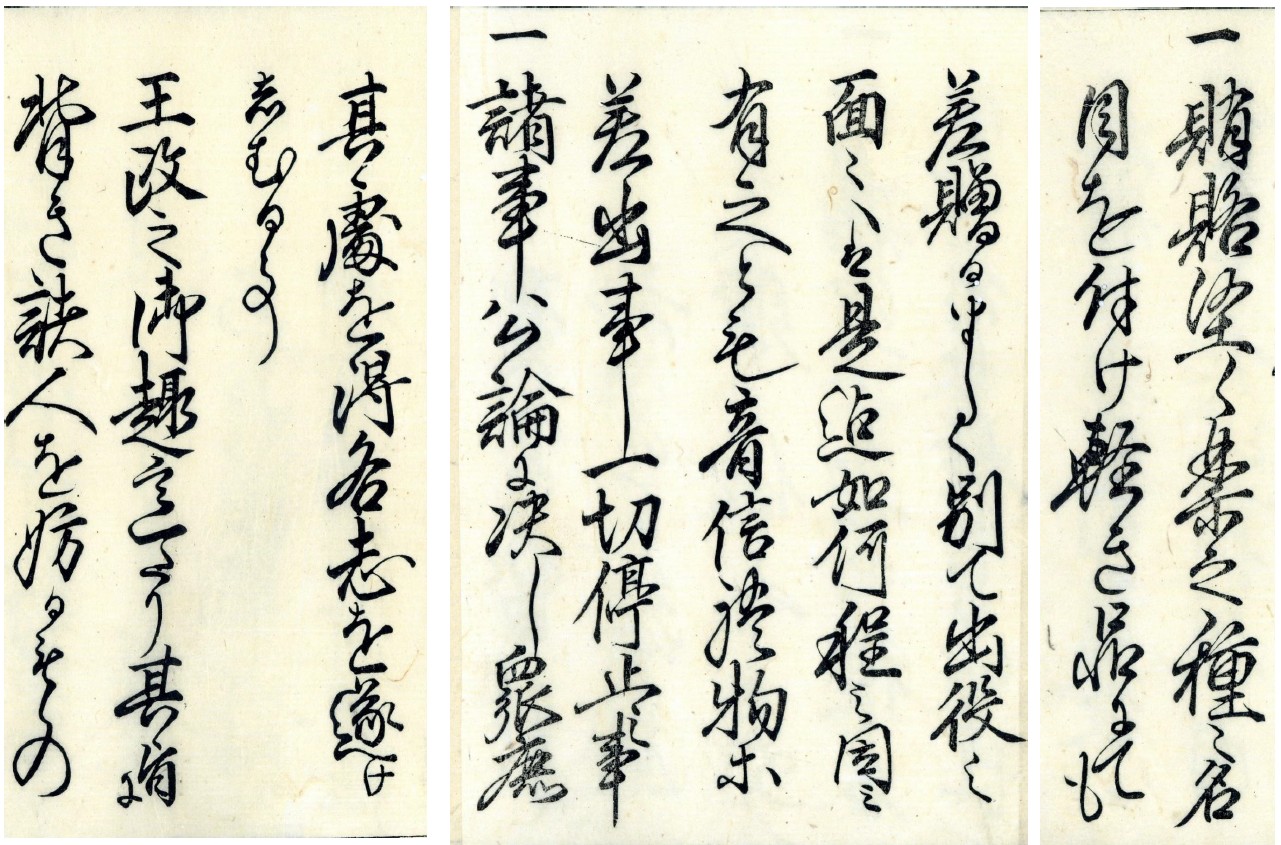 一 賄賂堅く禁之種々名
目を付け軽き品にても
差贈るましく別て出役之
面々は是迄如何程之因ミ
有之とも音信礼物等
差出事一切停止之事
一 諸事公論に決し衆庶
其處を得各志を遂け
しむるの
王政之御趣意なり其旨に
背き訴人を妨るもの